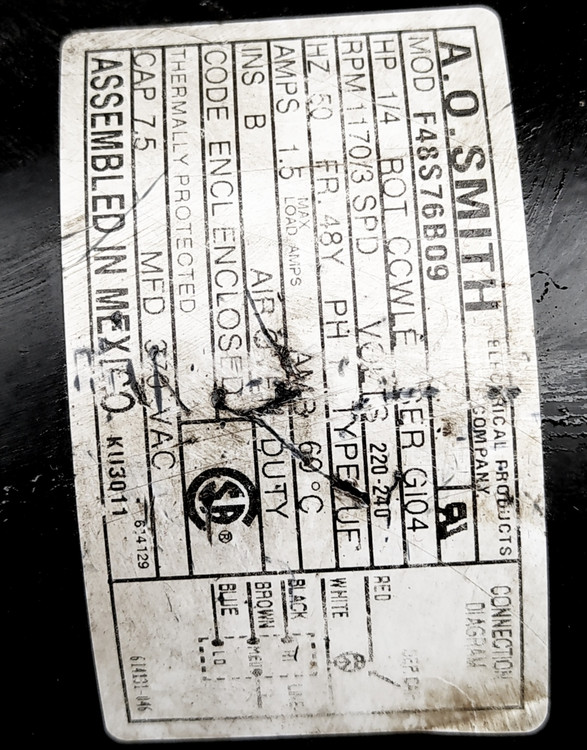 A.O. SMITH ELECTRICAL PRODUCTS COMPANY
MOD F48S76B09
HP 1/4 ROT CCWLE SER GI04
RPM 1170/3 SPD VOLTS 220-240
HZ 60 FR. 48Y PH TYPE UF
AMPS 1.5 MAX LOAD AMPS AMB 60°C
INS B AIR DUTY
CODE ENCL ENCLOSED
THERMALLY PROTECTED
CAP 7.5 MFD 370 VAC
ASSEMBLED IN MEXICO KII3011 614129
CONNECTION DIAGRAM
RED
WHITE
BLACK HI LINE
BROWN MED
BLUE LO
614131-046